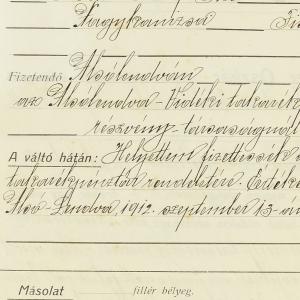 Nagykanizsa
Fizetendő Alsólendván
az Alsólendva-Vidéki takarék
részvény-társaságnál
A váltó hátán: Helyettem fizettessék a
takarékpénztár rendeletére. Érték
Alsó-Lendva, 1912. szeptember 13-án
Másolat fillér bélyeg.